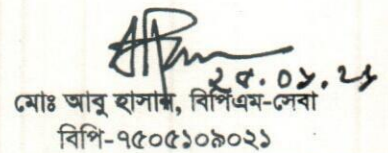 ২৫.০১.২১
মোঃ আবু হাসান, বিপিএম-সেবা
বিপি-৭৫০৫১০৯০২১